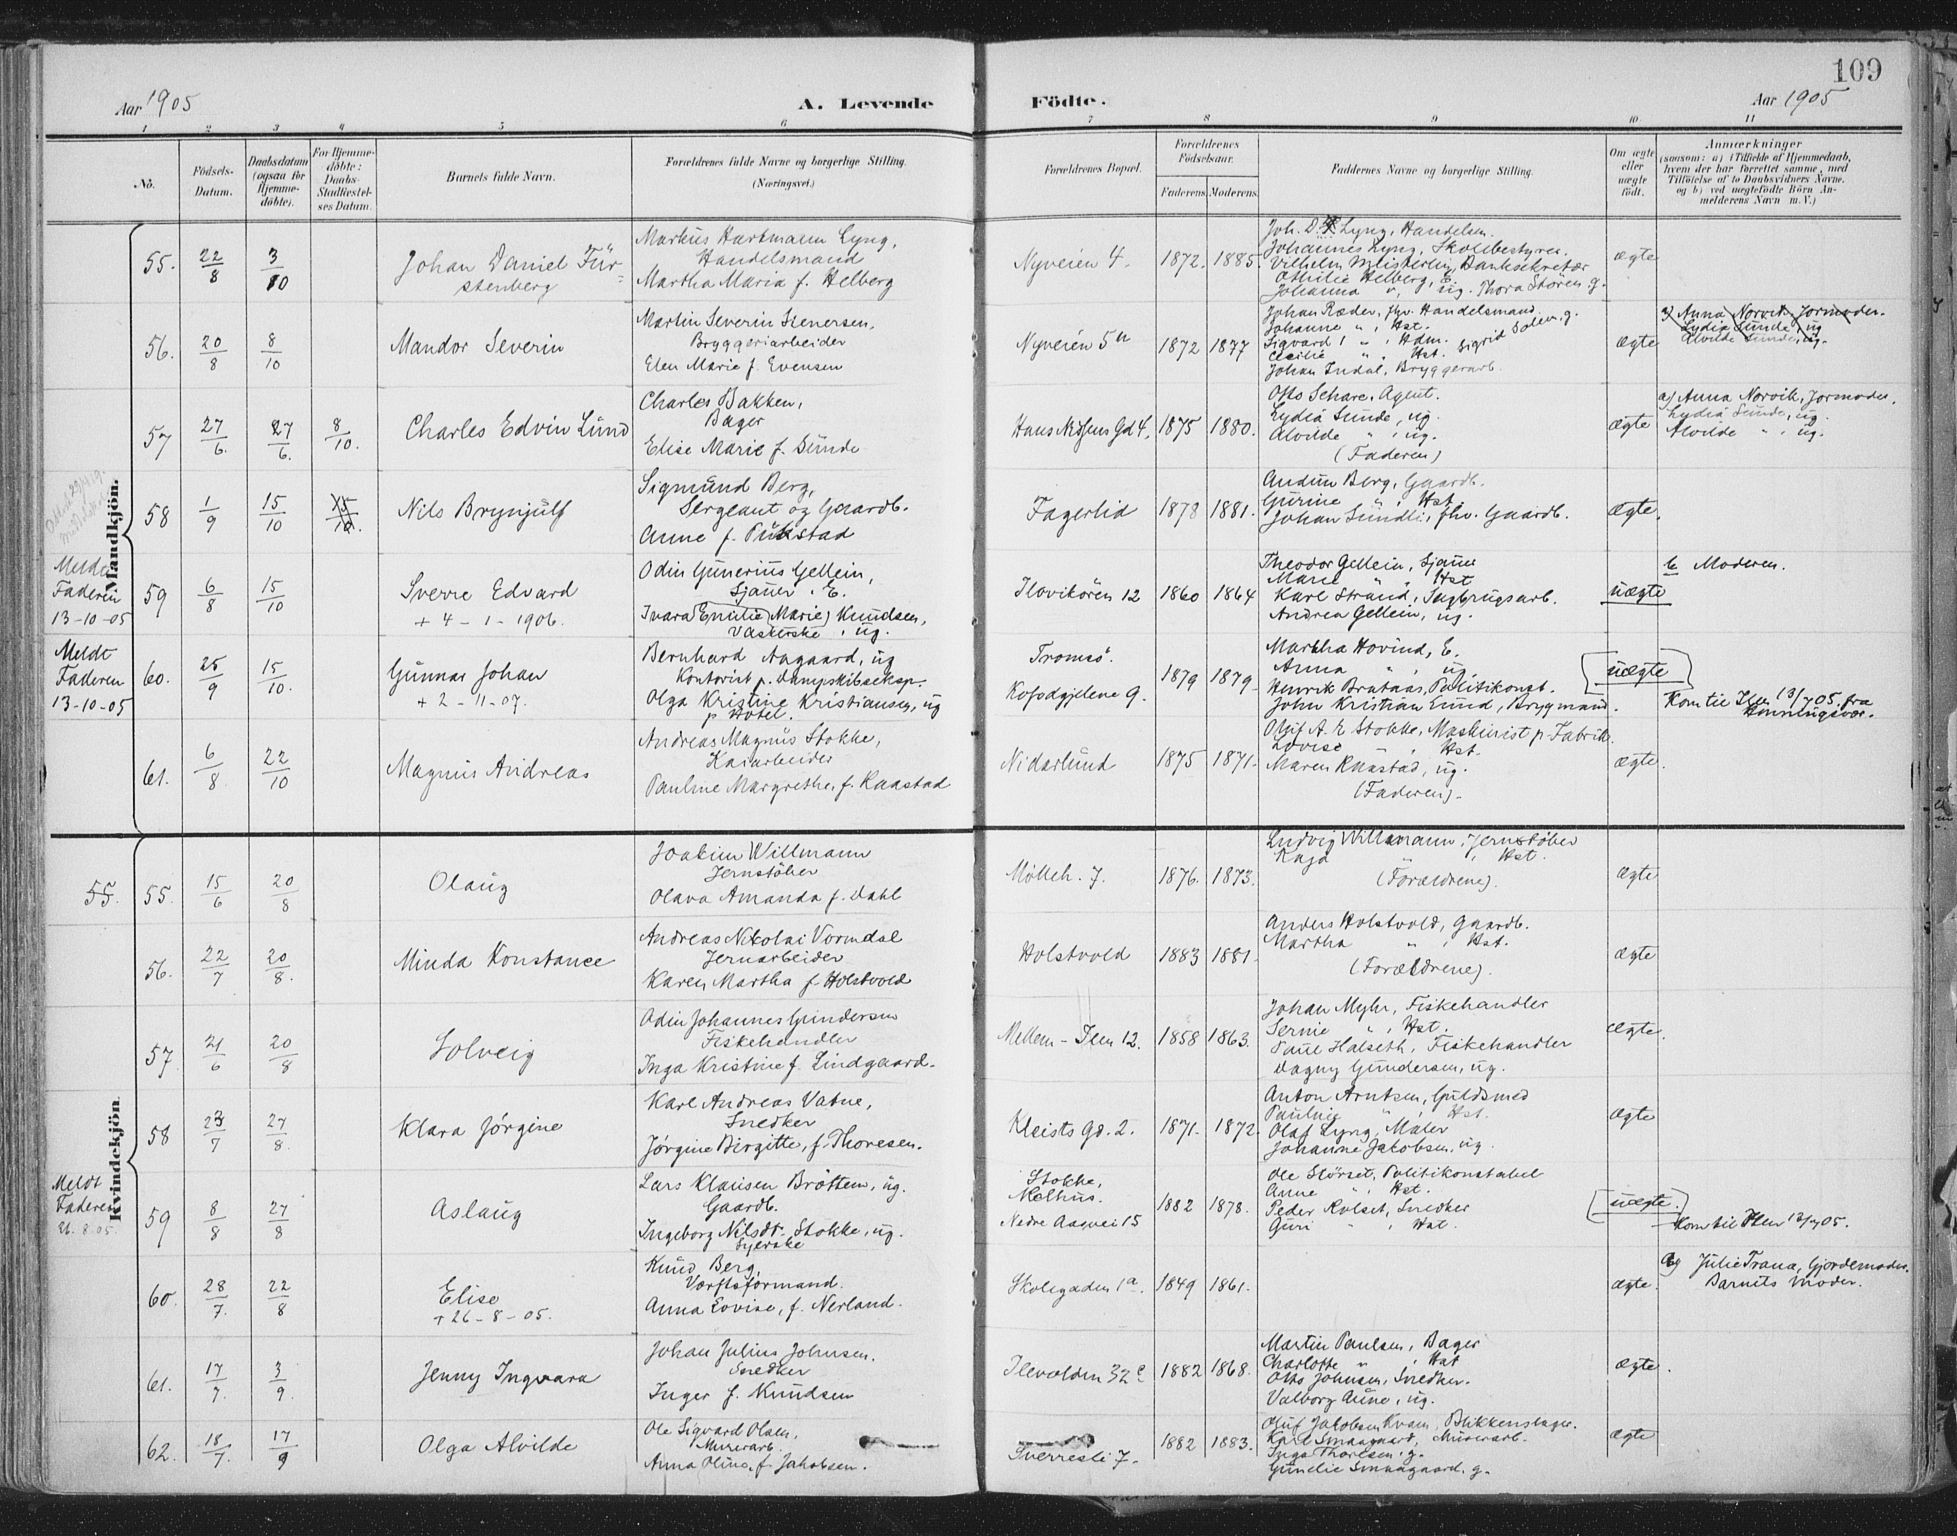 109
Aar 1905
A. Levende
Födte.
Aar 1905
1 2 3 4 5 6 7 8 9 10 11
No.
Födsels-Datum.
Daabsdatum (ogsaa for Hjemme-döbte).
For Hjemme-döbte: Daabs-Stadfæstel-ses Datum.
Barnets fulde Navn.
Forældrenes fulde Navne og borgerlige Stilling.
(Næringsvei.)
Forældrenes Bopæl.
Forældrenes Födselsaar.
Faderens. Moderens.
Faddernes Navne og borgerlige Stilling.
Om ægte eller uægte født.
Anmærkninger
(saasom: a) i Tilfælde af Hjemmedaab, hvem der har forrettet samme, med Tilföielse af to Daabsvidners Navne, og b) ved uægtefödte Börn An-melderens Navn m. V.)
Mandkjön.
55. 22/8 3/10 Johan Daniel Für-
stenberg
Markus Hartmann Lyng,
Handelsmand
Martha Maria f. Helberg
Nyveien 4. 1872. 1885.
Joh. D. F. Lyng, Handelsm.
Johannes Lyng, Skolebestyrer
Vilhelm Meisterlin, Banksekretær
Othilie Helberg, E.
Johanna " , ug. Thora Stören g.
ægte
56. 20/8 8/10 Mandor Severin
Martin Severin Stenersen,
Bryggeriarbeider
Elen Marie f. Evensen
Nyveien 5 1872 1877
Johan Ræder, fhv. Handelsmand
Johanne " , Hst.
Sigvard " , Hdm. Sigrid Solem. g.
Cecilie " , Hst.
Johan Indal, Bryggerarb.
ægte
a) Anna Norvik, Jormoder.
Lydia Sunde, ug
Alvilde Sunde, ug.
57 27/6. 27/6. 8/10. Charles Edvin Lund
Charles Bakken,
Bager
Elise Marie f. Sunde
Hans Nissens Gd 4, 1875 1880.
Otto Schare, Agent.
Lydia Sunde, ug.
Alvilde " , ug.
(Faderen)
ægte
a) Anna Norvik, Jormoder,
Lydia Sunde, ug.
Alvilde " , ug.
58 1/9 15/10 Nils Brynjulf
Sigmund Berg,
Sergeant og Gaardb.
Anne f. Pukstad
Fagerlid 1878 1881.
Audun Berg, Gaardb.
Gurine " , Hst.
Johan Sundli, fhv. Gaardb.
ægte.
Meldt
Faderen
13-10-05
59 6/8 15/10 Sverre Edvard
+ 4 - 1 - 1906.
Odin Gunerius Gellein,
Sjauer. E.
Ivara (Emilie Marie) Knudsen,
Vaskerske, ug.
Ilevikören 12 1860 1864
Theodor Gellein, Sjauer
Marie " , Hst
Karl Strand, Sagbrugsarb.
Andrea Gellein, ug.
uægte
b Moderen.
Meldt
Faderen
13-10-05
60. 25/9 15/10. Gunnar Johan
+ 2 - 11 - 07.
Bernhard Aagaard, ug
Kontorist p. Dampskibseksp.
Olga Kristine Kristiansen, ug
p Hotel.
Tromsö.
Kofodgjelene 9. 1879 1879.
Martha Hovind, E.
Anna " , ug.
Henrik Brataas, Politikonst.
John Kristian Lund, Brygmand.
uægte
Kom til Ilen 13/7 05. fra
Honningsvær.
61. 6/8. 22/10 Magnus Andreas
Andreas Magnus Stokke,
Kaiarbeider
Pauline Margrethe, f. Raastad
Nidarlund 1875 1871.
Oluf A. E Stokke, Maskinist p. Fabrik.
Lovise " , Hst.
Maren Raastad, ug.
(Faderen).
ægte.
Kvindekjön
55. 55. 15/6 20/8 Olaug
Joakim Willmann
Jernstöber
Olava Amanda f. Dahl
Mölleb. 7. 1876. 1873.
Ludvig Willmann, Jernstöber
Kaja " , Hst.
(Forældrene).
ægte
56. 22/7 20/8. Minda Konstance
Andreas Nikolai Vormdal
Jernarbeider
Karen Martha f. Holstvold
Holstvold 1883 1881.
Anders Holstvold, Gaardb.
Martha " , Hst.
(Forældrene).
ægte
57 21/6 20/8 Solveig
Odin Johannes Gundersen
Fiskehandler
Inga Kristine f. Lindgaard.
Mellem-Ilen 12. 1858 1863.
Johan Myhr, Fiskehandler
Sernie " , Hst.
Paul Halseth, Fiskehandler
Dagny Gundersen, ug.
ægte.
58 23/7 27/8. Klara Jörgine
Karl Andreas Vatne,
Snedker
Jörgine Birgitte, f. Thoresen.
Kleists Gd. 2. 1871. 1872.
Anton Arntsen, Guldsmed
Pauline " , Hst.
Olaf Lyng, Maler
Johanne Jakobsen, ug.
ægte
Meldt
Faderen
26.8.05.
59 8/8 27/8 Aslaug
Lars Klausen Bröttem, ug.
Gaardb.
Ingeborg Nilsdt. Stokke, ug.
Syerske
Stokke,
Melhus.
Nedre Aagvei 15 1882 1878.
Ole Störset, Politikonstabel
Anne " , Hst.
Peder Rolset, Snedker
Guri " , Hst.
uægte.
Kom til Ilen 13/7 05.
60. 28/7. 22/8 Elise
+ 26 - 8 - 05.
Knud Berg,
Værftsformand.
Anna Lovise, f. Nerland.
Skolegaden 1a. 1849 1861.
ægte.
a) Julie Trana, Gjordemoder.
Barnets Moder.
61. 17/7. 3/9. Jenny Ingvara
Johan Julius Johnsen,
Snedker
Inger f. Knudsen
Ilevolden 32c 1882 1868.
Martin Paulsen, Bager
Charlotte " , Hst
Otto Johnsen, Snedker.
Valborg Aune, ug.
ægte.
62. 18/7. 17/9 Olga Alvilde
Ole Sigvard Olsen,
Murerarb.
Anna Oline, f. Jakobsen.
Sverresli 7. 1882 1883.
Oluf Jakobsen Kvam, Blikkenslager.
Karl Smaagaard, Murerarb.
Inga Thoresen, g.
Gunelie Smaagaard, g.
ægte